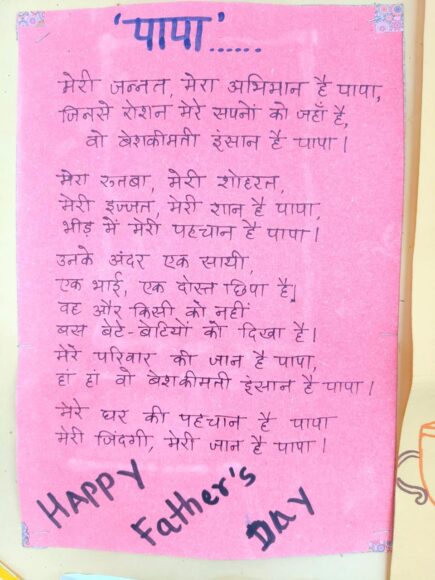 'पापा'......
मेरी जन्नत, मेरा अभिमान है पापा,
जिनसे रोशन मेरे सपनों को जहाँ है,
वो बेशकीमती इंसान है पापा।
मेरा रूतबा, मेरी शोहरत,
मेरी इज्जत, मेरी शान है पापा,
भीड़ में मेरी पहचान है पापा।
उनके अंदर एक साथी,
एक भाई, एक दोस्त छिपा है।
वह और किसी को नहीं
बस बेटे-बेटियों को दिखा है।
मेरे परिवार की जान है पापा,
हां हां वो बेशकीमती इंसान है पापा।
मेरे घर की पहचान है पापा
मेरी जिंदगी, मेरी जान है पापा।
HAPPY
Father's
DAY